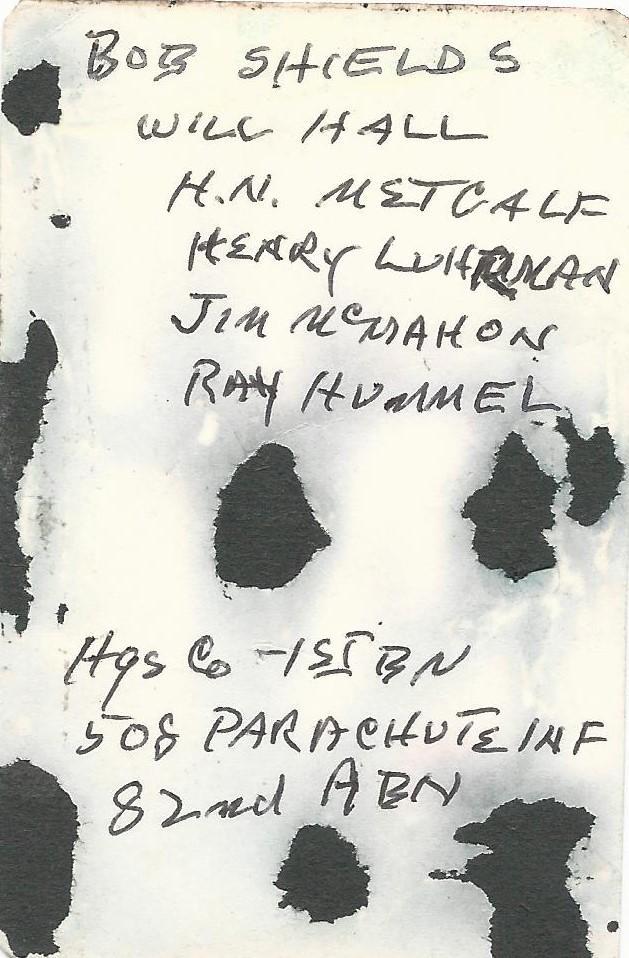 BOB SHIELDS
WILL HALL
H.N. METCALF
HENRY LUHRMAN
JIM McMAHON
RAY HUMMEL
Hqs Co - 1ST BN
508 PARACHUTE INF
82nd ABN